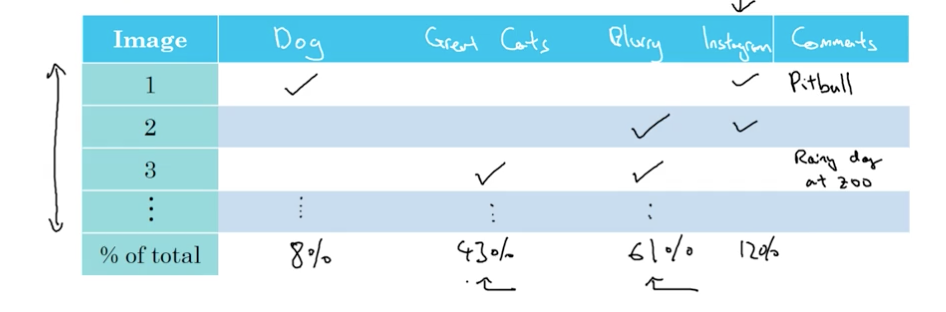 Image Dog Great Cats Blurry Instagram Comments
1 Pitbull
2
3 Rainy day
at zoo
% of total 8% 43% 61% 12%